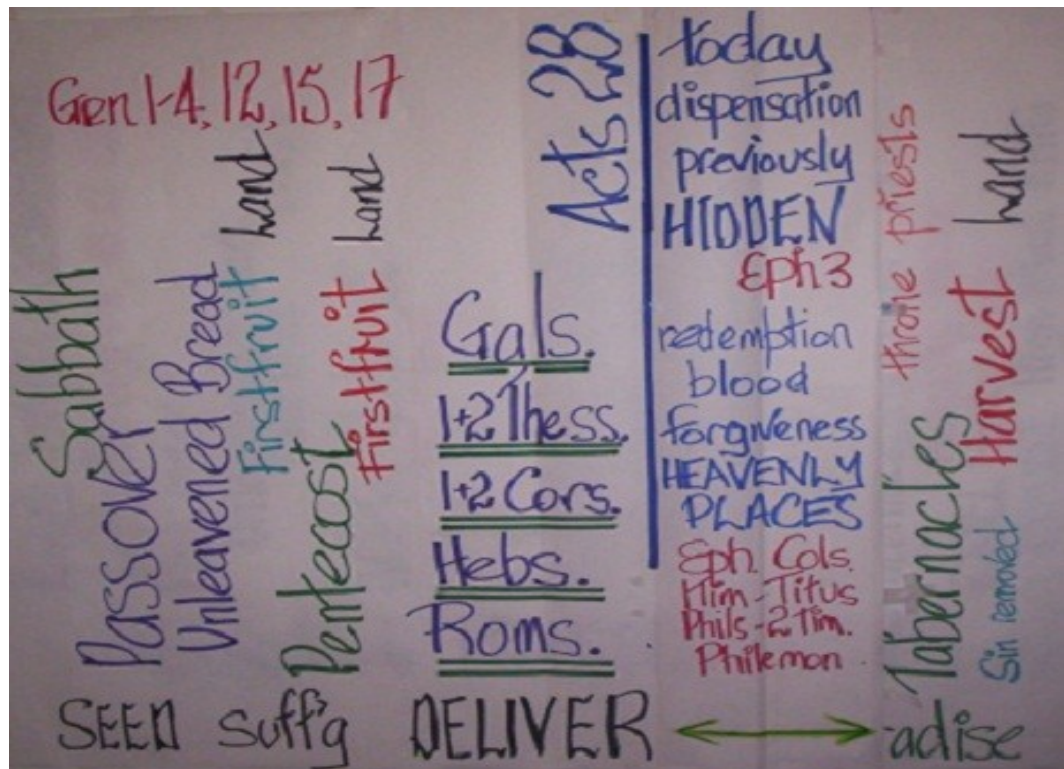 Gen 1-4, 12, 15, 17
Sabbath
Passover
Unleavened Bread
Firstfruit Land
Pentecost
Firstfruit Land
Gals.
1+2 Thess.
1+2 Cors.
Hebs.
Roms.
Acts 28
today
dispensation
previously
HIDDEN
Eph 3
redemption
blood
forgiveness
HEAVENLY
PLACES
Eph. Cols.
1Tim-Titus
Phils-2Tim.
Philemon
throne priests
Tabernacles
Harvest Land
Sin removed
SEED Suff'g DELIVER adise